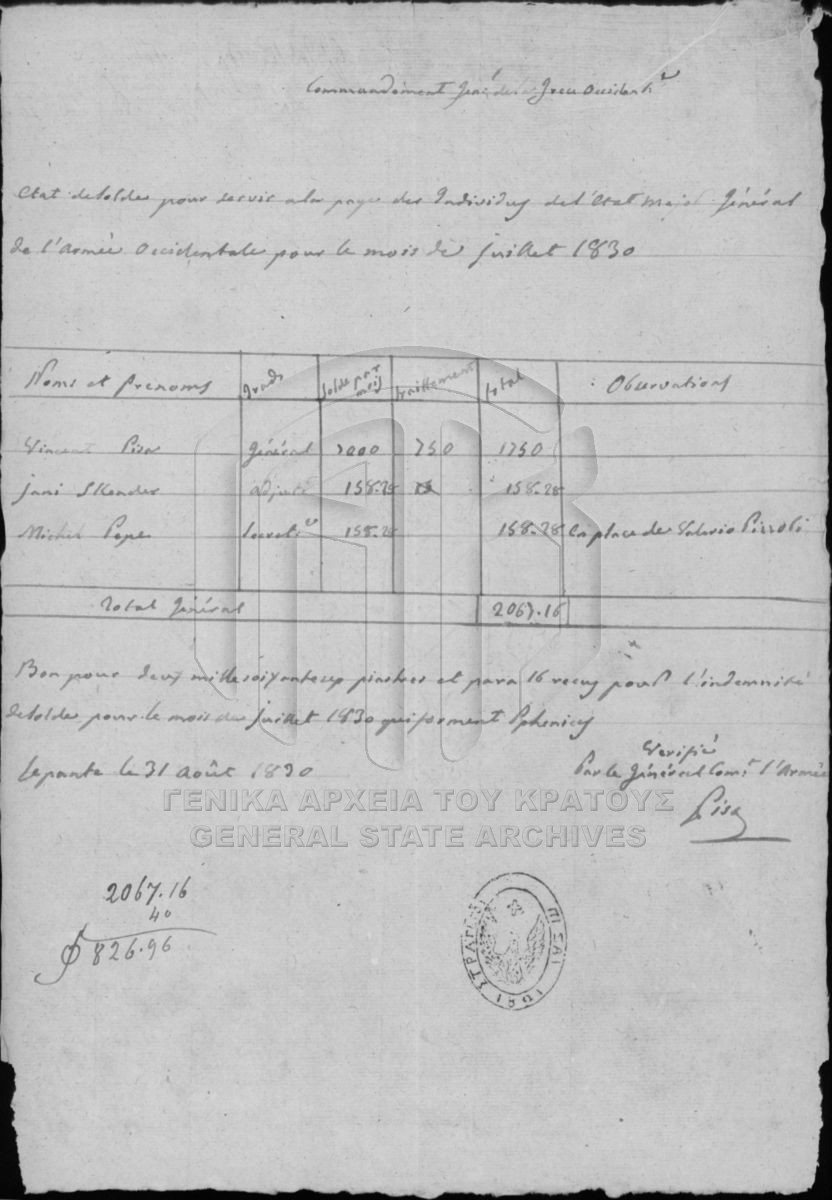 Commandement Gén. de la Grece Occident.le
Etat de Solde pour servir a la paye des Individus de l'Etat Major Général
de l'Armée Occidentale pour le mois de Juillet 1830
Noms et Prenoms grade Solde par mois traittement total Observations
Vincent Pisa Général 1000 750 1750
Jani Skender adjut. 158.28 158.28
Michel Pepe Secret.re 158.28 158.28 En place de Valerio Pizzoli
Total Général 2067.16
Bon pour deux mille soixantesep piastres et para 16 recus pour l'indemnité
de Solde pour le mois de Juillet 1830 qui forment Phenices
Lepante le 31 Août 1830
Verifié
Par le Général Com.t l'Armée
Pisa
ΓΕΝΙΚΑ ΑΡΧΕΙΑ ΤΟΥ ΚΡΑΤΟΥΣ
GENERAL STATE ARCHIVES
2067.16
40
826.96